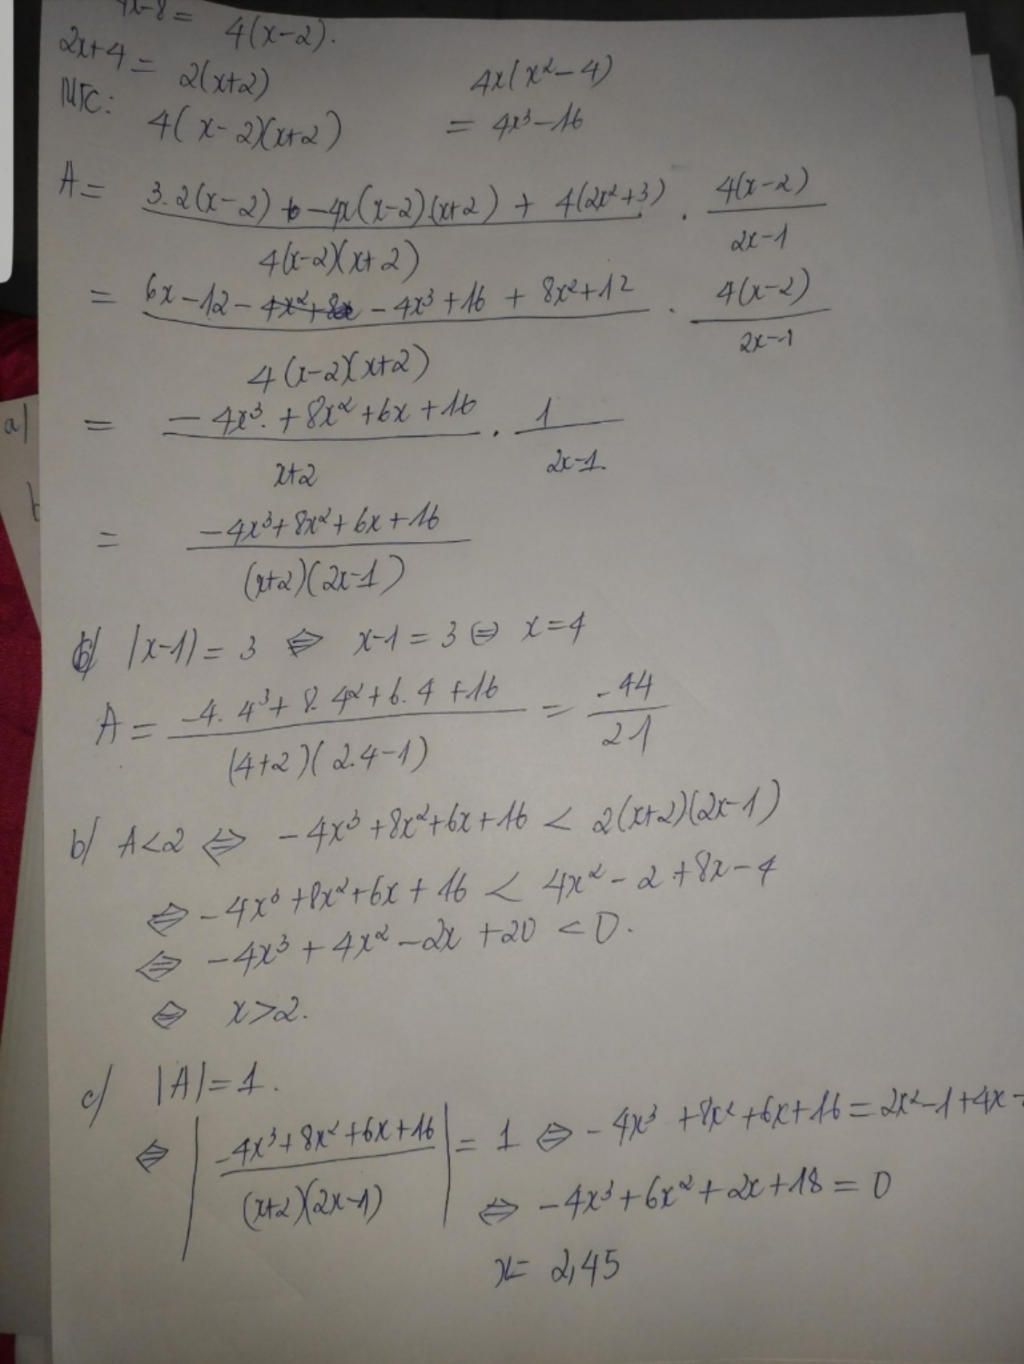 4x-8 = 4(x-2).
2x+4 = 2(x+2)
4x(x²-4)
MTC: 4(x-2)(x+2)
= 4x³-16
A = 3.2(x-2) + -4x(x-2).(x+2) + 4(2x²+3) / 4(x-2)(x+2) . 4(x-2) / 2x-1
= 6x-12 - 4x²+8x - 4x³+16 + 8x²+12 / 4(x-2)(x+2) . 4(x-2) / 2x-1
= -4x³.+8x²+6x+16 / x+2 . 1 / 2x-1.
a)
= -4x³+8x²+6x+16 / (x+2)(2x-1)
b
b) |x-1| = 3 ⇔ x-1 = 3 ⇔ x=4
A = -4.4³+8.4²+6.4+16 / (4+2)(2.4-1) = -44 / 21
b) A<2 ⇔ -4x³+8x²+6x+16 < 2(x+2)(2x-1)
⇔ -4x³+8x²+6x+16 < 4x²-2+8x-4
⇔ -4x³+4x²-2x+20 <0.
⇔ x>2.
c) |A|=1.
⇔ | -4x³+8x²+6x+16 / (x+2)(2x-1) | = 1 ⇔ -4x³+8x²+6x+16 = 2x²-1+4x-
⇔ -4x³+6x²+2x+18 = 0
x= 2,45